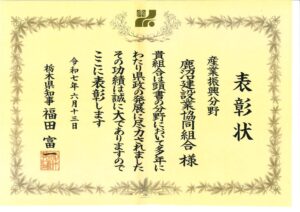 表彰状
産業振興分野
鹿沼建設業協同組合 様
貴組合は頭書の分野において多年に
わたり県政の発展に尽力されました
その功績は誠に大でありますので
ここに表彰します
令和七年六月十三日
栃木県知事 福田富一